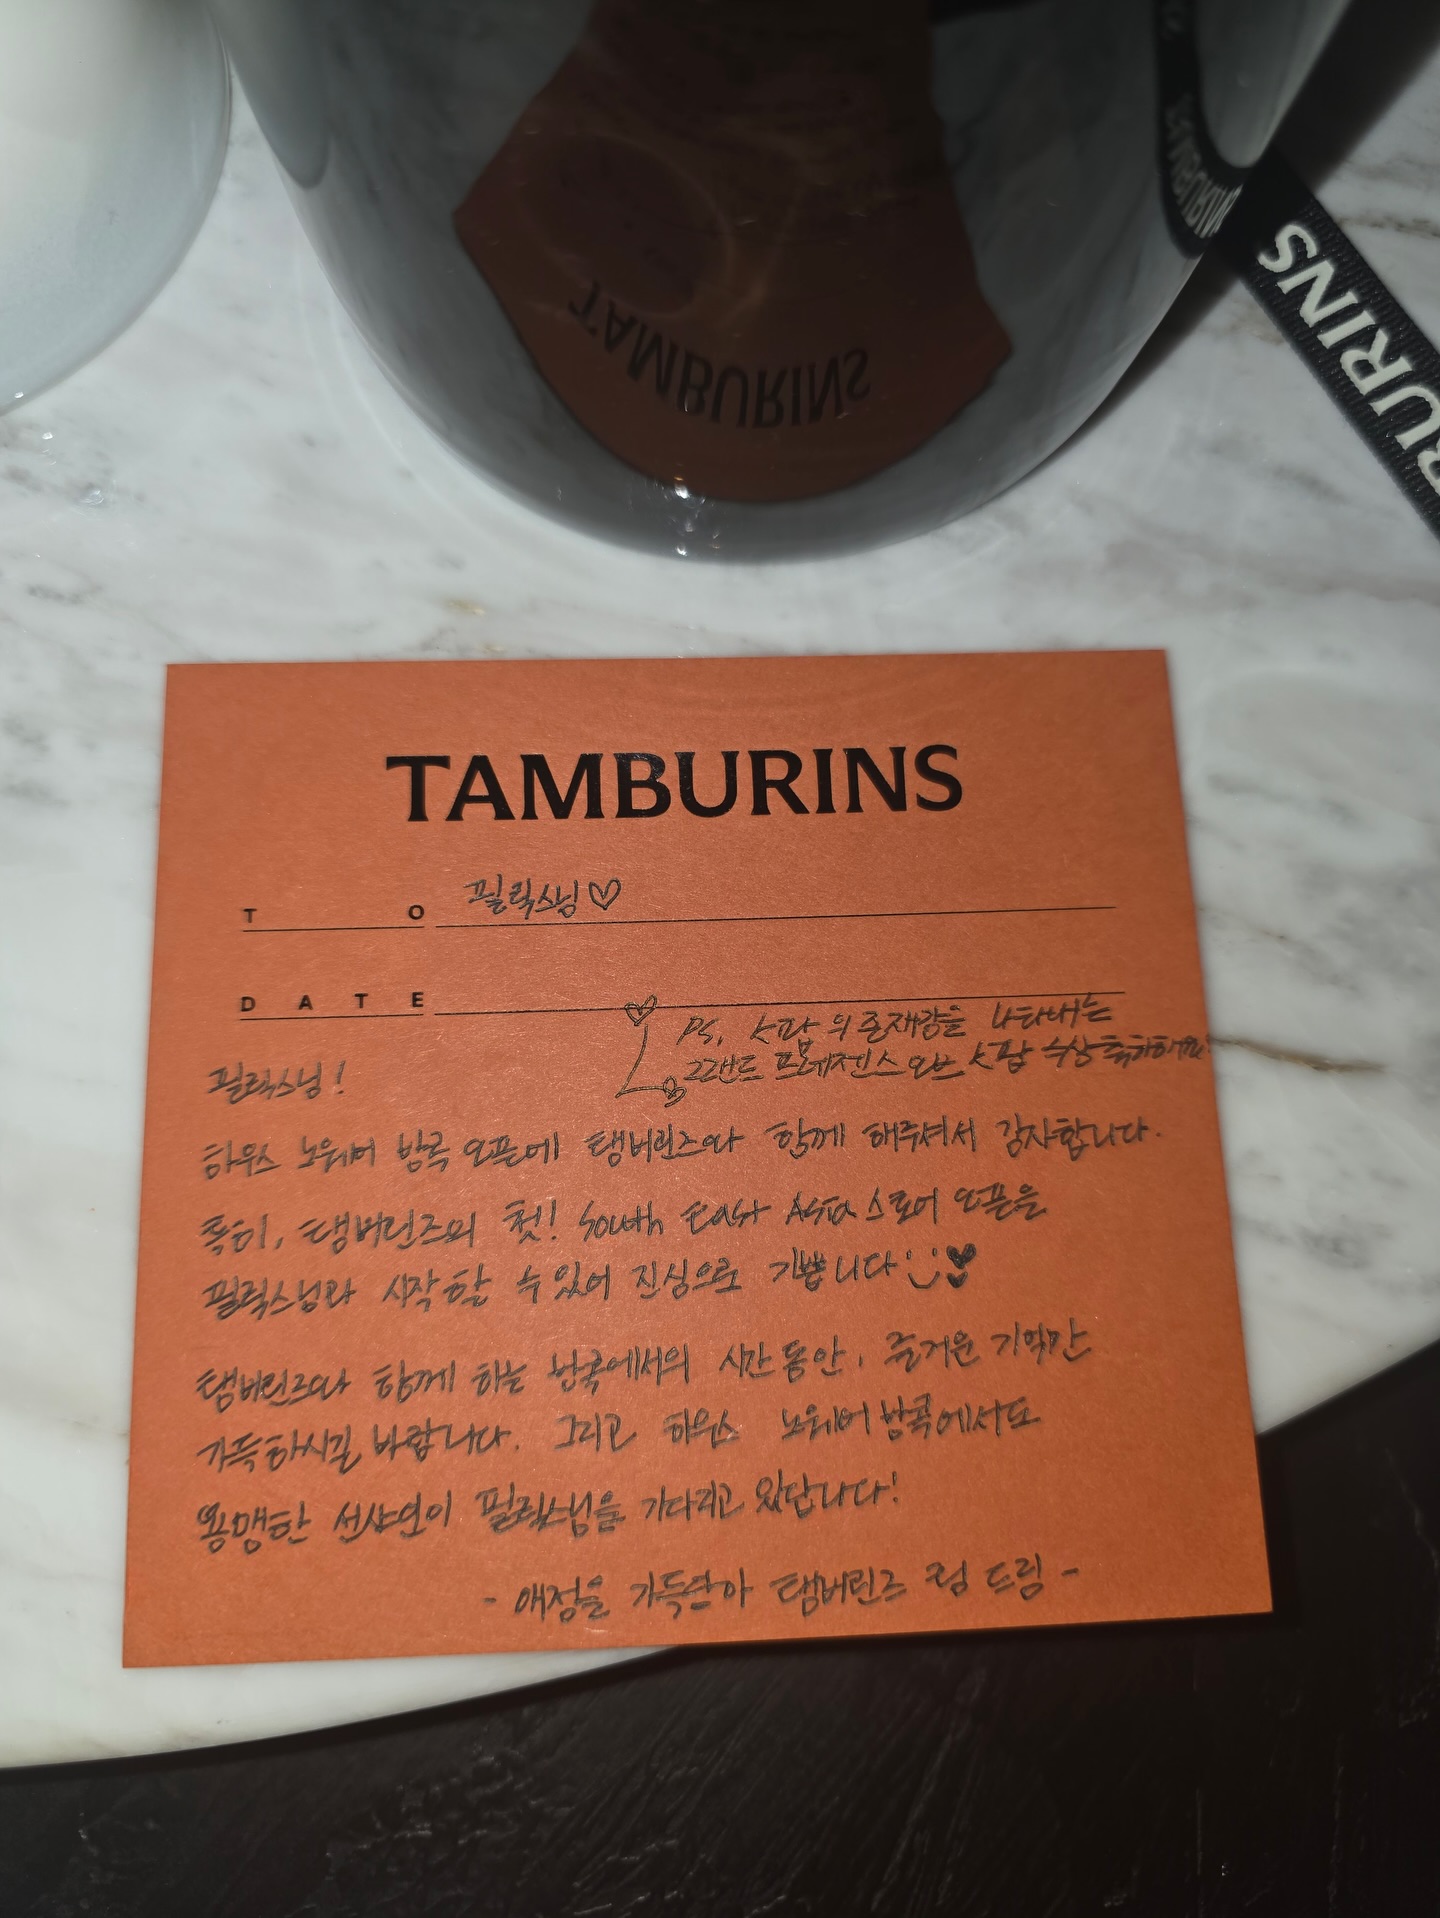 TAMBURINS
TAMBURINS
TO 필릭스님♡
DATE
PS. K팝의 존재감을 나타내는
그랜드 프레젠스 오브 K팝 수상 축하해요!
필릭스님!
하우스 노웨어 방콕 오픈에 탬버린즈와 함께 해주셔서 감사합니다.
특히, 탬버린즈의 첫! South East Asia 스토어 오픈을
필릭스님과 시작할 수 있어 진심으로 기쁩니다
탬버린즈와 함께 하는 방콕에서의 시간동안, 즐거운 기억만
가득하시길 바랍니다. 그리고 하우스 노웨어 방콕에서도
용맹한 선샤인이 필릭스님을 기다리고 있답니다!
- 애정을 가득담아 탬버린즈 팀 드림 -